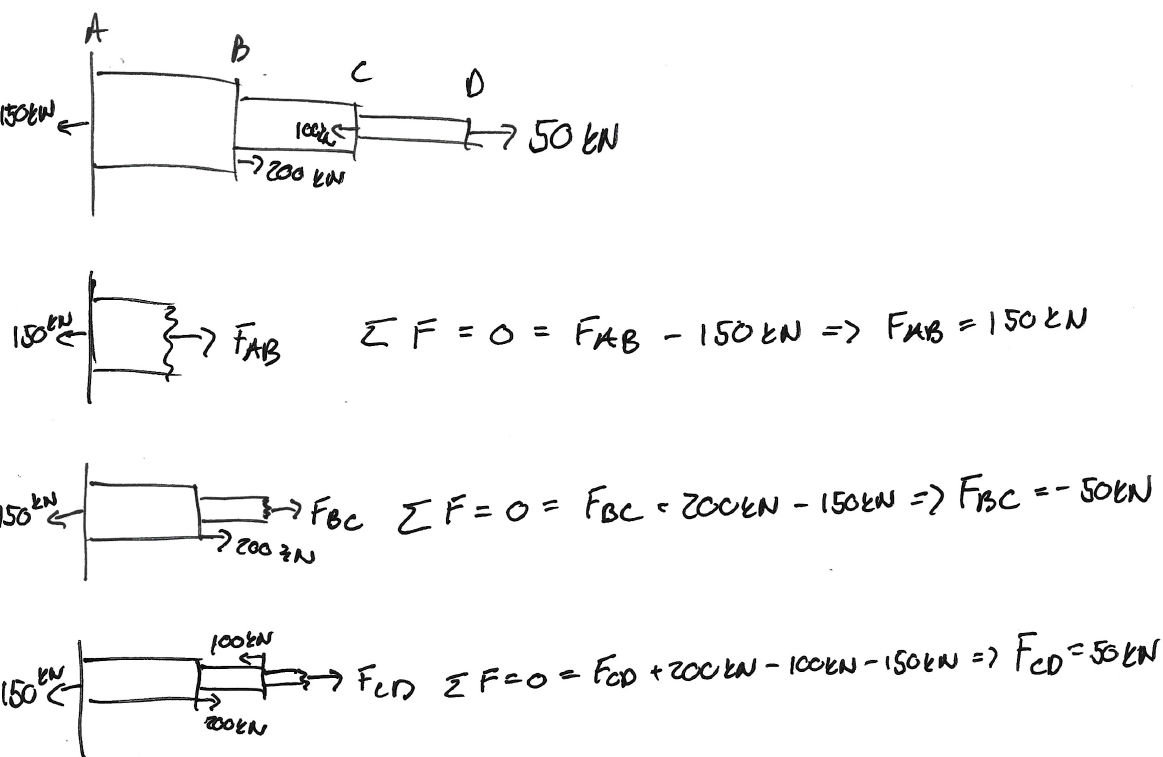 A
B
C
D
150kN
100kN
50 kN
200 kN
150kN
F_AB
Σ F = 0 = F_AB - 150kN => F_AB = 150kN
150kN
F_BC
Σ F = 0 = F_BC - 200kN - 150kN => F_BC = -50kN
200kN
100kN
150kN
F_CD
Σ F = 0 = F_CD + 200kN - 100kN - 150kN => F_CD = 50kN
200kN